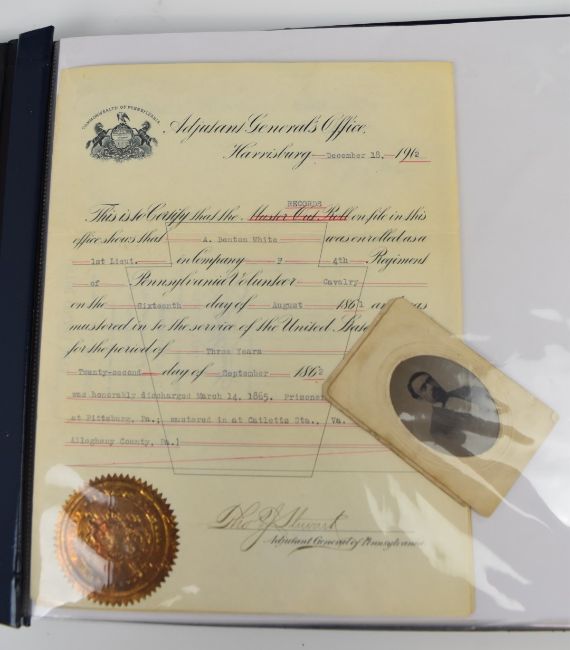 COMMONWEALTH OF PENNSYLVANIA
Adjutant General's Office,
Harrisburg December 18, 1912
RECORDS
This is to Certify that the Muster Out Roll on file in this
office shows that A. Benton White was enrolled as a
1st Lieut. in Company F 4th Regiment
of Pennsylvania Volunteer Cavalry
on the Sixteenth day of August 1861 and was
mustered in to the service of the United State
for the period of Three Years
Twenty-second day of September 1862
was honorably discharged March 14, 1865. Prisoner
at Pittsburg, Pa.; mustered in at Catletts Sta., Va.
Alleghany County, Pa.)
Thos J Stewart
Adjutant General of Pennsylvania